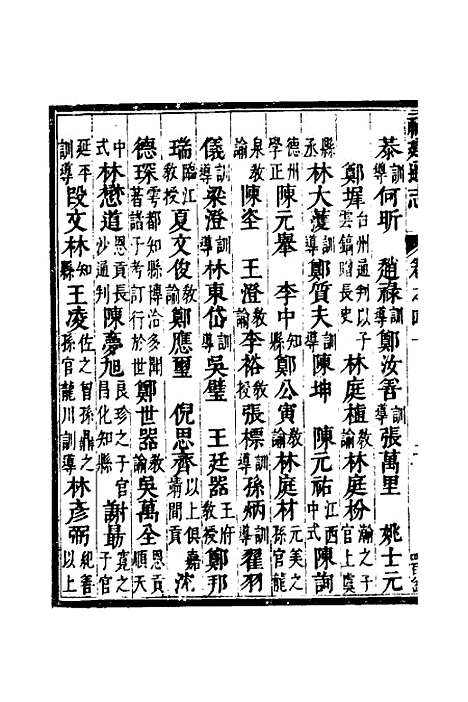 恭訓導何昕 趙祿訓導鄭汝吾訓導張萬里 姚士元
鄭墀台州通判以子雲鎬贈長史林庭㮋教諭林庭枌瀚之子官上虞
縣丞林大䕫訓導鄭質夫訓導陳坤 陳元祐江西中式陳詢
德州學正陳元舉 李中知縣鄭公寅教諭林庭材元美之孫官龍
泉教諭陳奎 王澄教授李裕教授張標訓導孫炳訓導翟羽
儀訓導梁澄訓導林東岱 吳璧 王廷器王府教授鄭邦
瑞臨江教授夏文俊教諭鄭應璽 倪思齊以上俱嘉靖間貢沈
德琛雩都知縣博洽多聞著諮子考訂行於世鄭世器教諭吳萬全恩貢順天
中式林懋道恩貢長沙通判陳夢旭良珍之子官昌化知縣謝勗之子官
延平訓導段文林知縣王凌佐之曾孫鼎之孫官龍川訓導林彥弼紀善以上